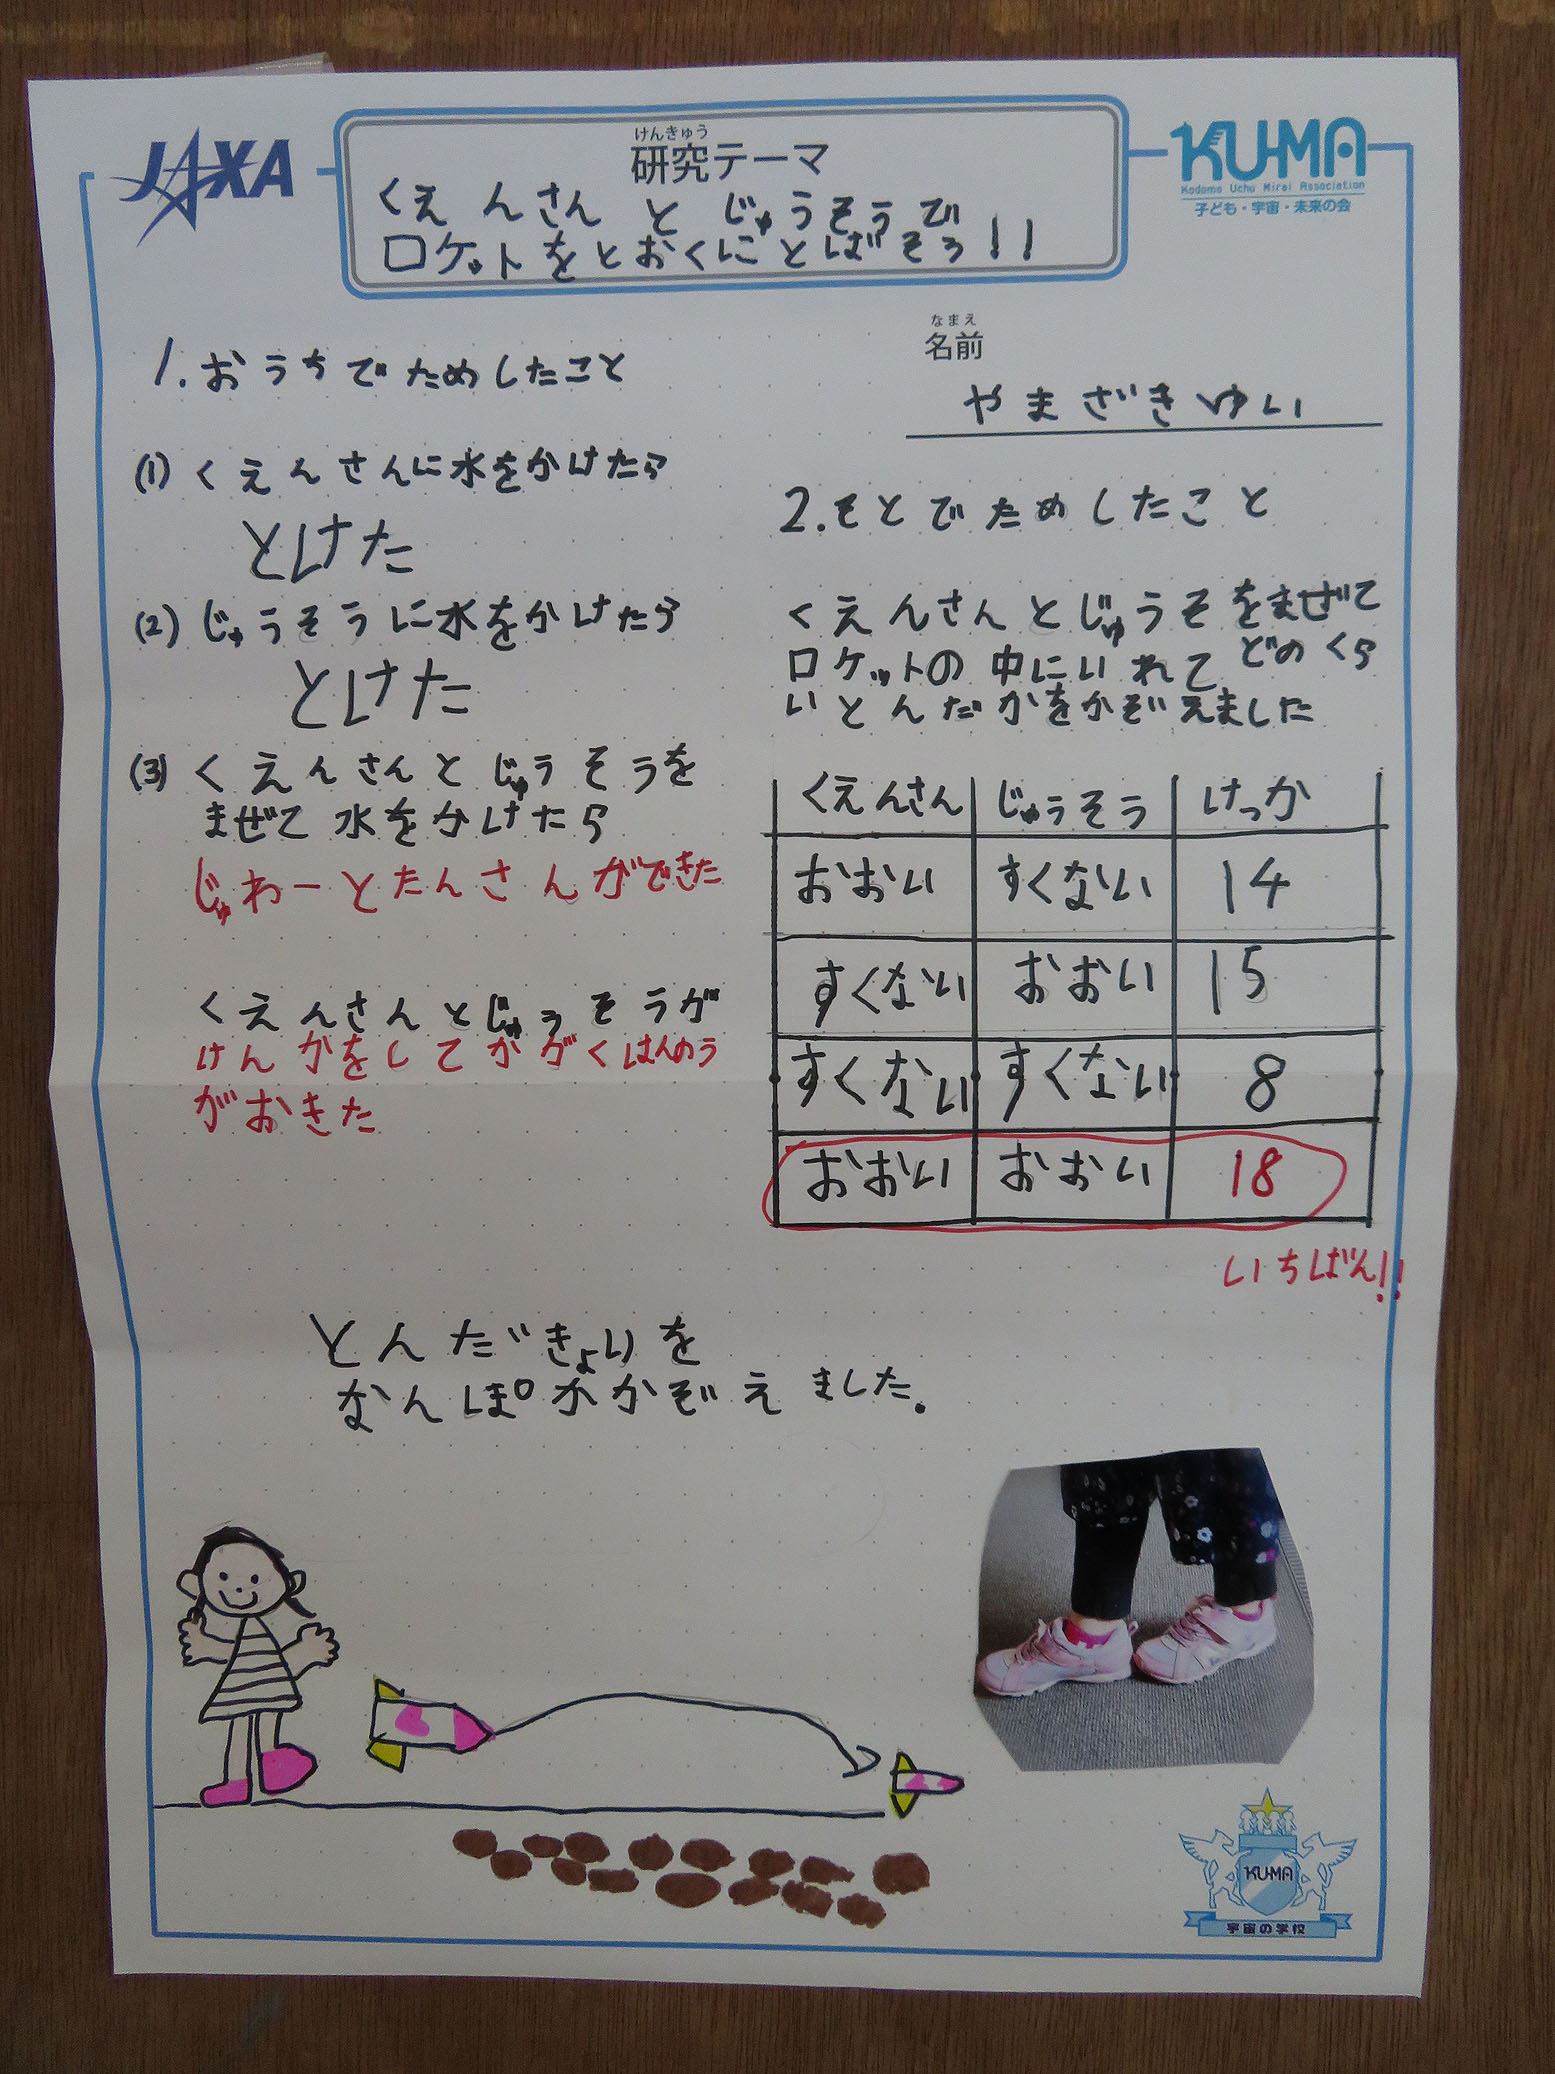 JAXA
けんきゅう
研究テーマ
くえんさんとじゅうそうで
ロケットをとおくにとばそう!!
KU-MA
Kodomo Uchu Mirai Association
子ども・宇宙・未来の会
なまえ
名前
やまざきゆい
1.おうちでためしたこと
(1)くえんさんに水をかけたら
とけた
(2)じゅうそうに水をかけたら
とけた
(3)くえんさんとじゅうそうを
まぜて水をかけたら
じゅわーとたんさんができた
くえんさんとじゅうそうが
けんかをしてかがくはんのう
がおきた
2.そとでためしたこと
くえんさんとじゅうそをまぜて
ロケットの中にいれてどのくら
いとんだかをかぞえました
くえんさん じゅうそう けっか
おおい すくない 14
すくない おおい 15
すくない すくない 8
おおい おおい 18
いちばん!!
とんだきょりを
なんぽかかぞえました。
KU-MA
宇宙の学校